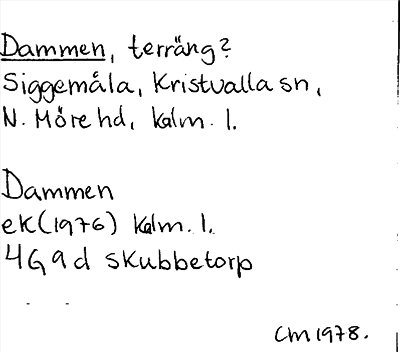 Dammen, terräng?
Siggemåla, Kristvalla sn,
N. Möre hd, Kalm. l.
Dammen
eK(1976) Kalm. l.
4G9d Skubbetorp
CM 1978.